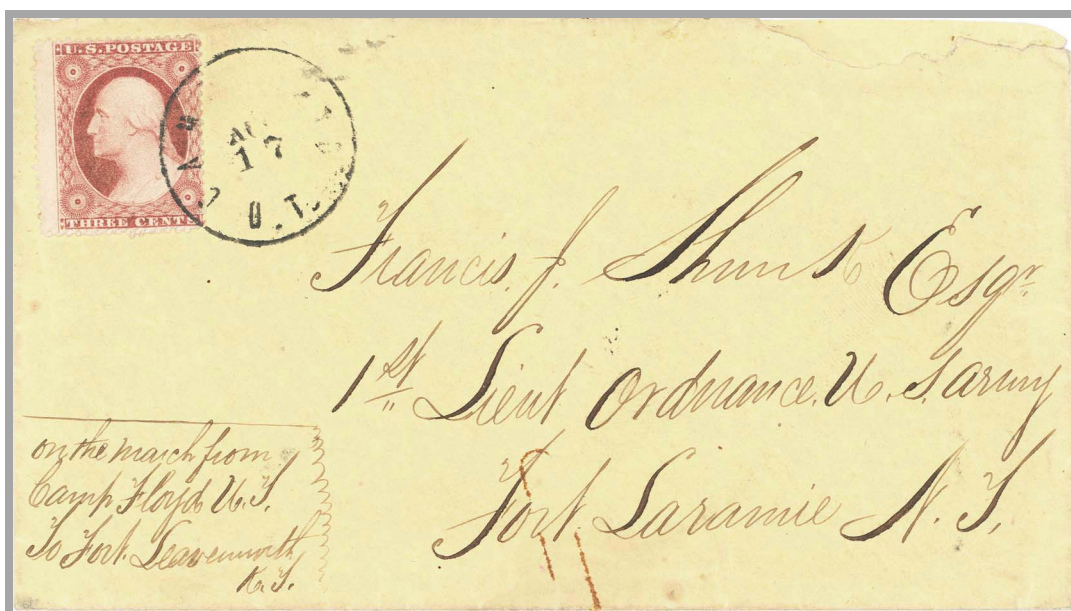 U.S.POSTAGE
THREE CENTS
AUG
17
U.T.
Francis. J. Shunk Esqr
1st Lieut Ordnance. U. S. army
Fort Laramie N. T.
on the march from
Camp Floyd U. T.
To Fort Leavenworth
K. T.